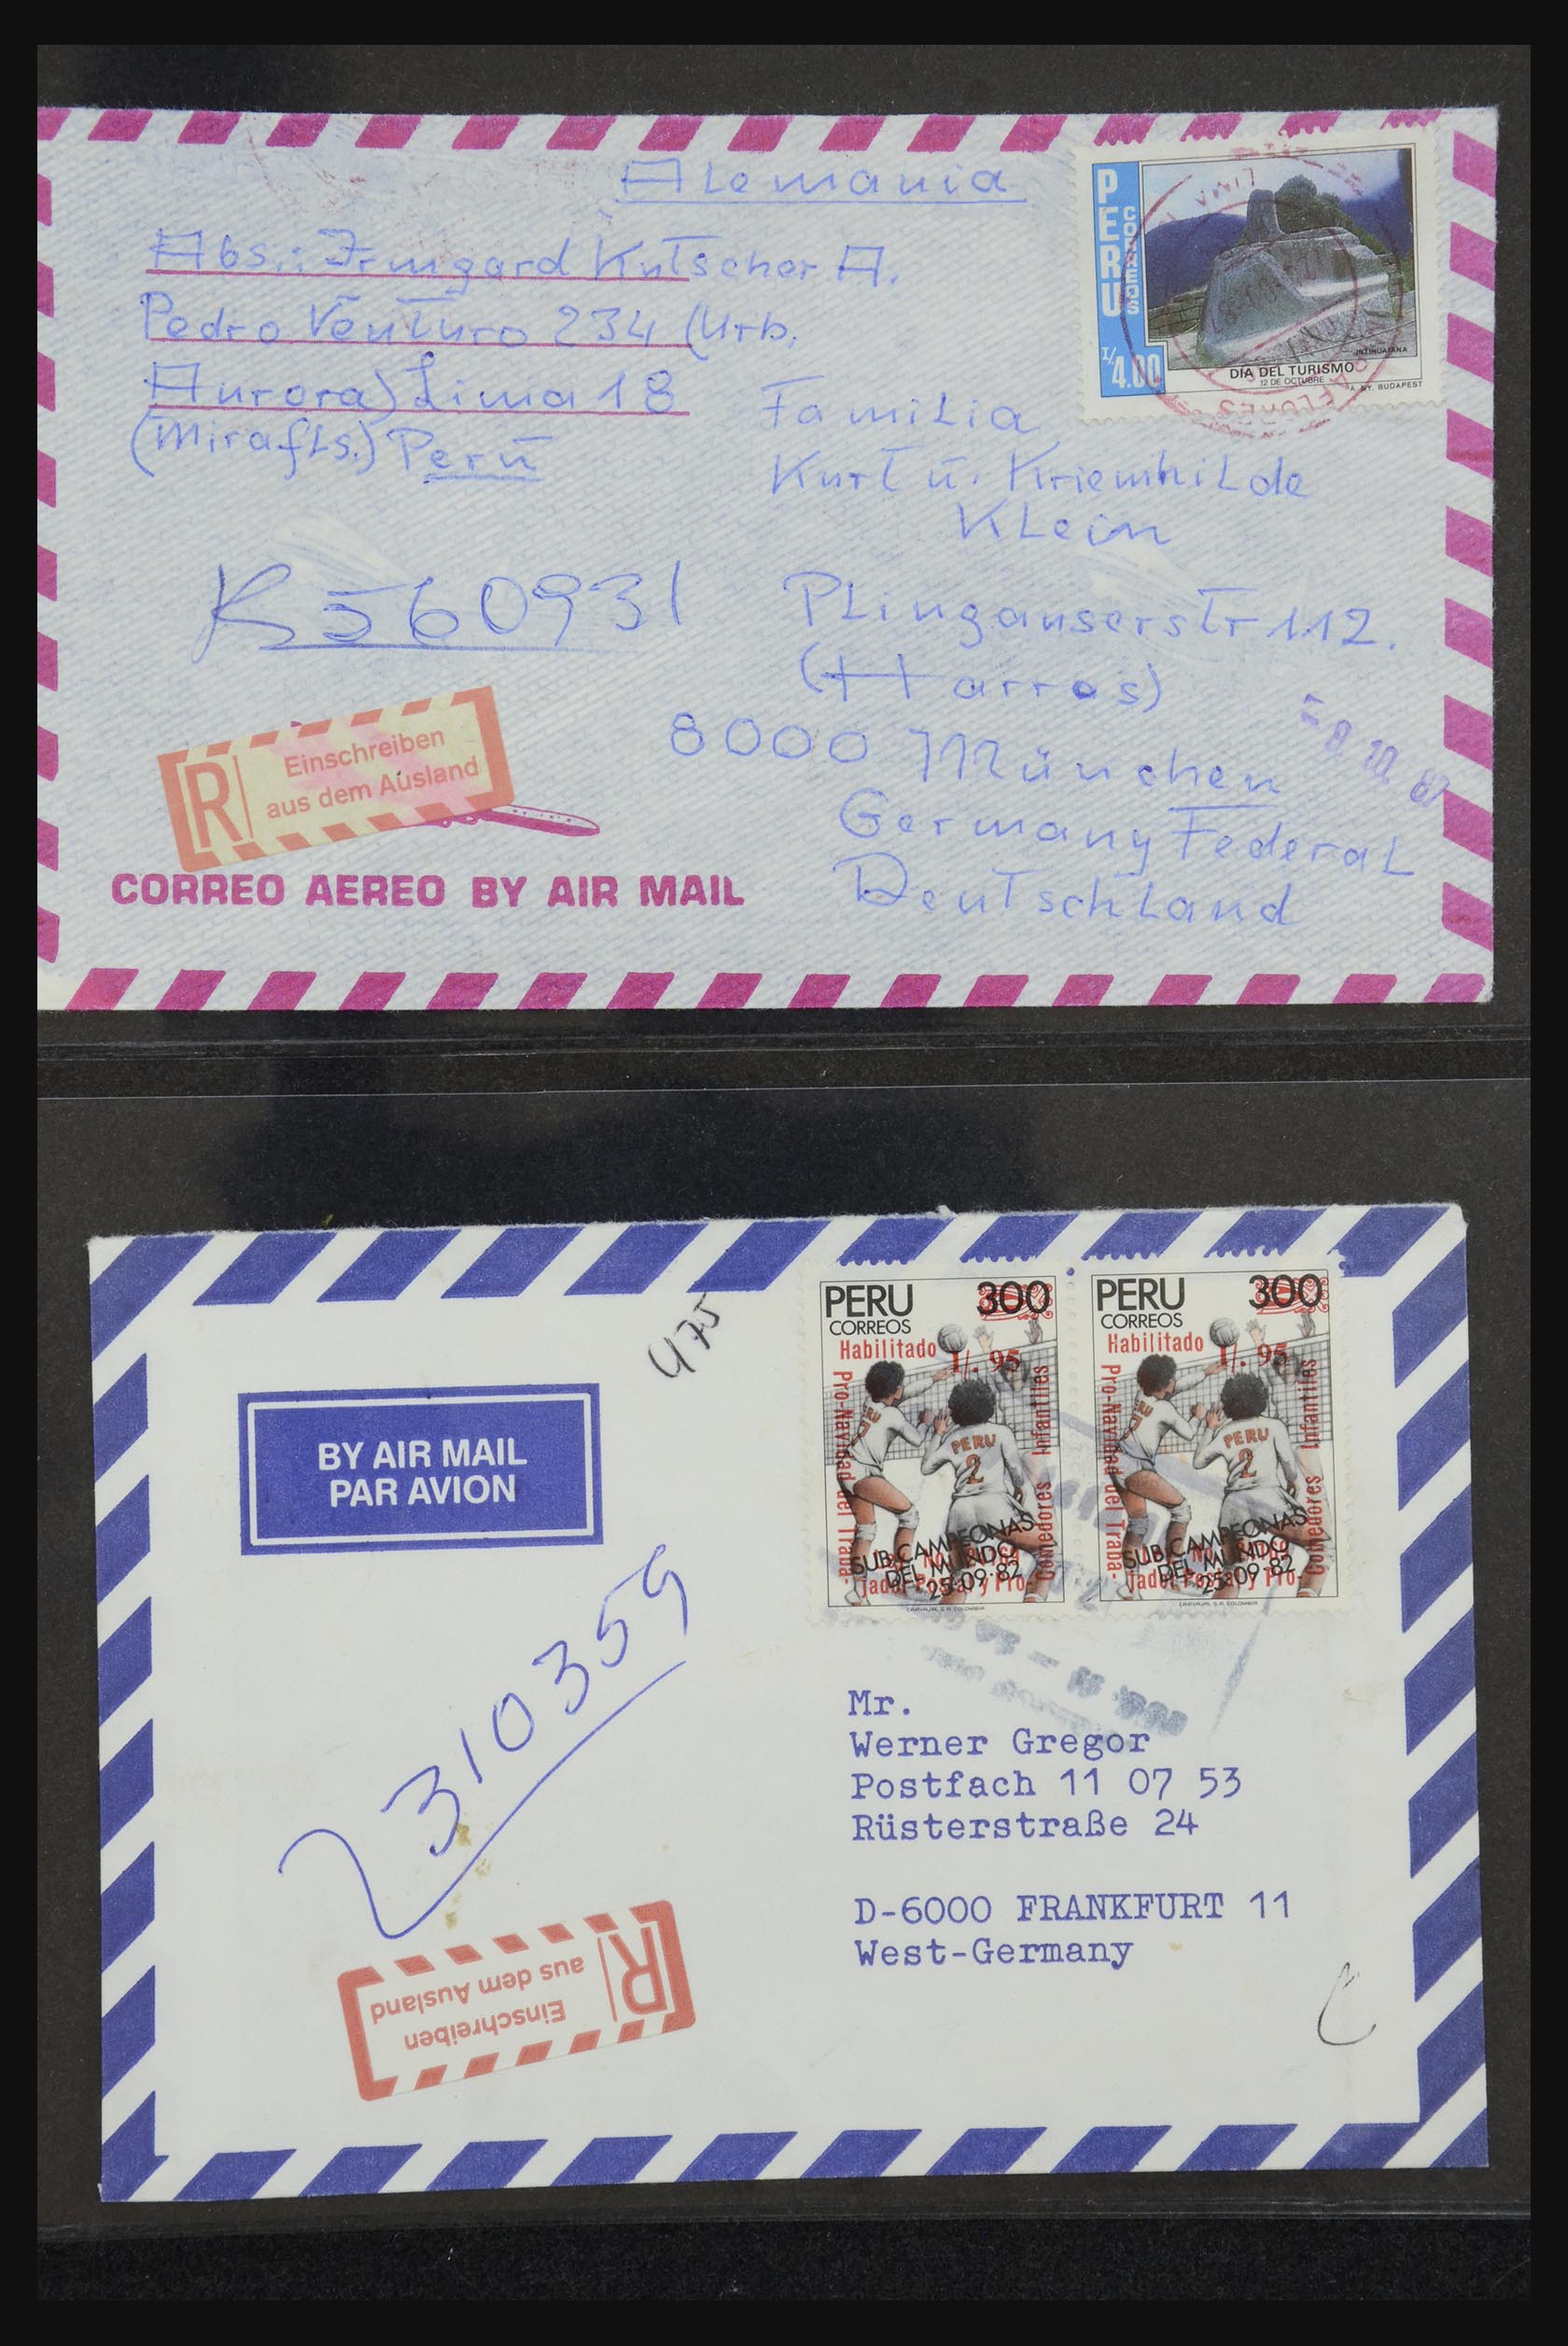 Alemania
Abs.: Irmgard Kutscher A.
Pedro Venturo 234 (Urb.
Aurora) Lima 18
(Mirafls.) Perū
PERU
CORREOS
I/4.00
INTIHUATANA
DIA DEL TURISMO
12 DE OCTUBRE
A. NY. BUDAPEST
Familia
Kurt ū. Kriemhilde
Klein
R 560931
Plinganserstr 112.
(Harras)
8000 München
Germany Federal
Deutschland
9. 10. 87
R
Einschreiben
aus dem Ausland
CORREO AEREO BY AIR MAIL
475
PERU 300
CORREOS
Habilitado
I/. 95
Pro-Navidad del Traba-
jador Postal y Pro-
Comedores Infantiles
PERU
2
SUB CAMPEONAS
DEL MUNDO
25·09·82
CARVAJAL S.A. COLOMBIA
PERU 300
CORREOS
Habilitado
I/. 95
Pro-Navidad del Traba-
jador Postal y Pro-
Comedores Infantiles
PERU
2
SUB CAMPEONAS
DEL MUNDO
25·09·82
CARVAJAL S.A. COLOMBIA
BY AIR MAIL
PAR AVION
310359
Mr.
Werner Gregor
Postfach 11 07 53
Rüsterstraße 24
D-6000 FRANKFURT 11
West-Germany
R
Einschreiben
aus dem Ausland